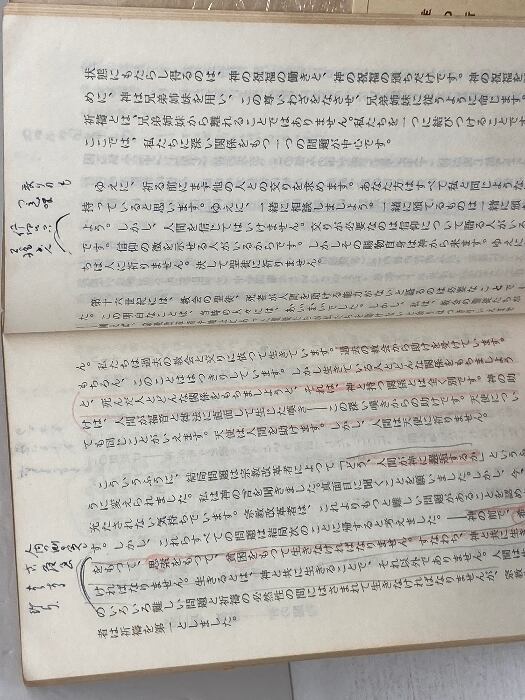 状態にもたらし得るのは、神の祝福の働きと、神の祝福の頒ちだけです。神の祝福を
めに、神は兄弟姉妹を用い、この尊いわざをなさせ、兄弟姉妹に従うように命じます。
祈禱とは、兄弟姉妹から離れることではありません。私たちを一つに結びつけることです
ここでは、私たちに深い関係をもつ一つの問題が中心です。
ゆえに、祈る前にまず他の人との交りを求めます。あなた方はすべて私と同じような
持っていると思います。ゆえに、一緒に相談しましょう。一緒に頒てるものは一緒に頒
よう。しかし、人間を信じてはいけません。交りが必要なのは信仰について語る人がいる
です。信仰の徴を示せる人がいるからです。しかしその賜物自身は神から来ます。ゆえに
ちは人に祈りません。決して聖徒に祈りません。
第十六世紀には、教会の聖徒、死者が人間を助ける能力がないと語るのは必要なことで
ん。私たちは過去の教会と交りに依って生きています。過去の教会から助けを受けています。
もちろん、このことははっきりしています。しかし生きている人とどんな関係をもちましよう
と、死んだ人とどんな関係をもちましようと、それは、神と持つ関係とは全く別です。神の助
けは、人間が福音と律法に直面して生じた嘆き――この深い嘆きからの助けです。天使につい
ても同じことがいえます。天使は人間を助けます。しかし、人間は天使に祈りません。
こういうふうに、結局問題は宗教改革者によって「どう、人間が神に
うに変えられました。私は神の声を聞きました。真面目に聞くことを願いました。しかし、今
充たされない気持ちでいます。宗教改革者は、これよりもっと難しい問題があることを認め
す。しかし、これらすべての問題は結局次のことに帰すると考えました。――神の前で、
をもって、思 をもって、貧困をもって生きなければなりません。すなわち、神と共に生
ければなりません。生きるとは、神と共に生きることで、それ以外でありません。人間は
のいろいろ難しい問題と祈禱の必然性の間にはさまれて生きなければなりませんが、宗教
者は祈禱を第一としました。